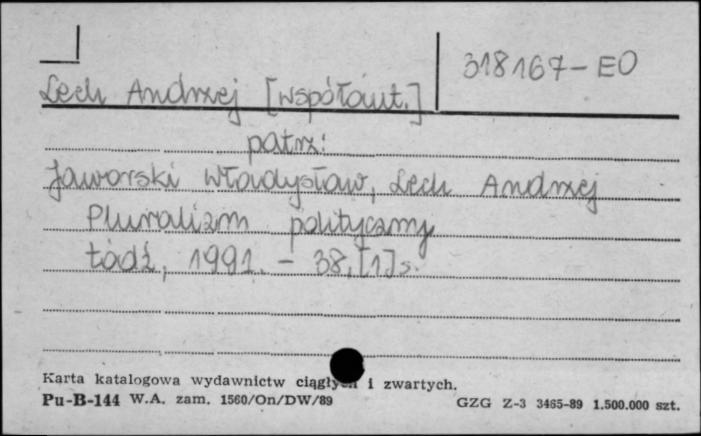 318167-EO
Lech Andrzej [współaut.]
patrz:
Jaworski Władysław, Lech Andrzej
Pluralizm polityczny
Łódź, 1991. - 38, [1] s.
Karta katalogowa wydawnictw ciągłych i zwartych.
Pu-B-144 W.A. zam. 1560/On/DW/89 GZG Z-3 3465-89 1.500.000 szt.